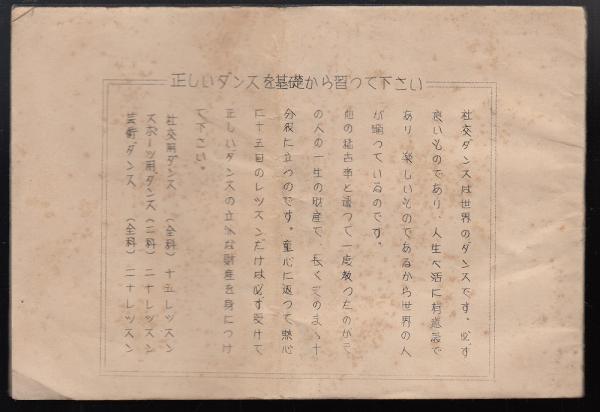 正しいダンスを基礎から習つて下さい
社交ダンスは世界のダンスです。必ず
良いものであり、人生 活に有意義で
あり 楽しいものであるから世界の人
が踊つているのです。
他の稽古事と違つて一度教つたのが
の人の一生の財産で、長くそのまゝ十
分役に立つのです。童心に返つて熱心
に十五回のレツスンだけは必ず受けて
正しいダンスの立派な財産を身につけ
て下さい。
社交用ダンス (全科) 十五レツスン
スポーツ用ダンス(二科) 二十レツスン
芸術ダンス (全科) 二十レツスン